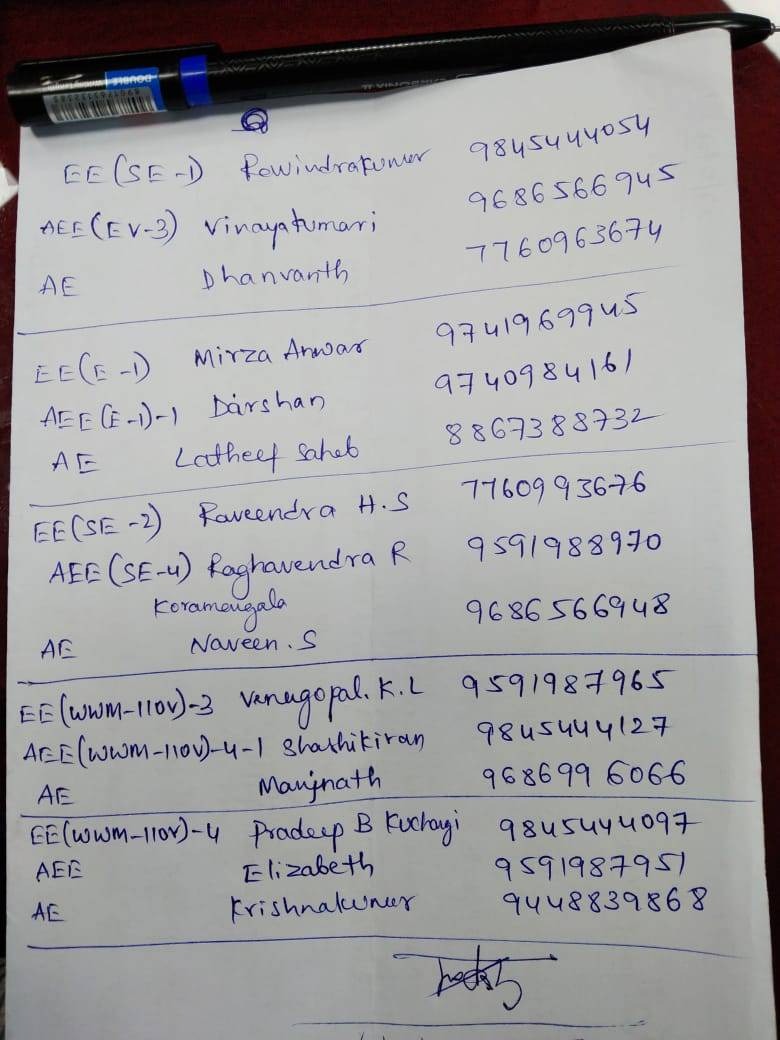 EE (SE-1) Rowindrakumar 9845444054
AEE (EV-3) Vinayakumari 9686566945
AE Dhanvanth 7760963674
EE (E-1) Mirza Anwar 9741969945
AEE (E-1)-1 Darshan 9740984161
AE Latheef Saheb 8867388732
EE (SE-2) Raveendra H.S 7760993676
AEE (SE-4) Raghavendra R 9591988970
Koramangala
AE Naveen.S 9686566948
EE (WWM-110V)-3 Venugopal.K.L 9591987965
AEE (WWM-110V)-4-1 Shashikiran 9845444127
AE Manjnath 9686996066
EE (WWM-110V)-4 Pradeep B Kuchayi 9845444097
AEE Elizabeth 9591987951
AE Krishnakumar 9448839868